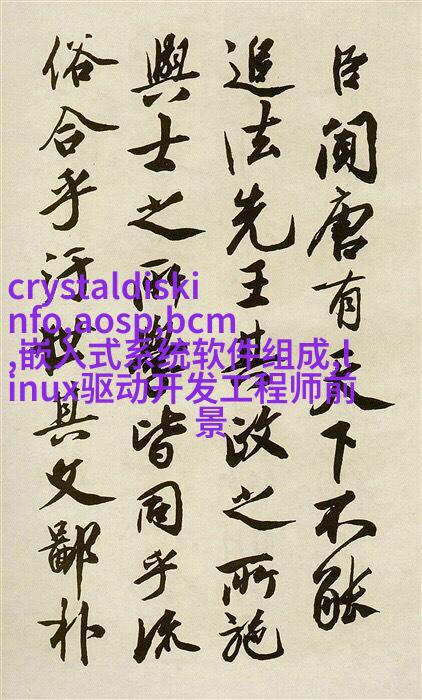 臣聞唐有天下不能
追法先王其政之所施
與士之所學皆同乎流
俗合乎汙故其文鄙朴
crystaldiski
nfo,aosp,bcm
,嵌入式系统软件组成,l
inux驱动开发工程师前
景